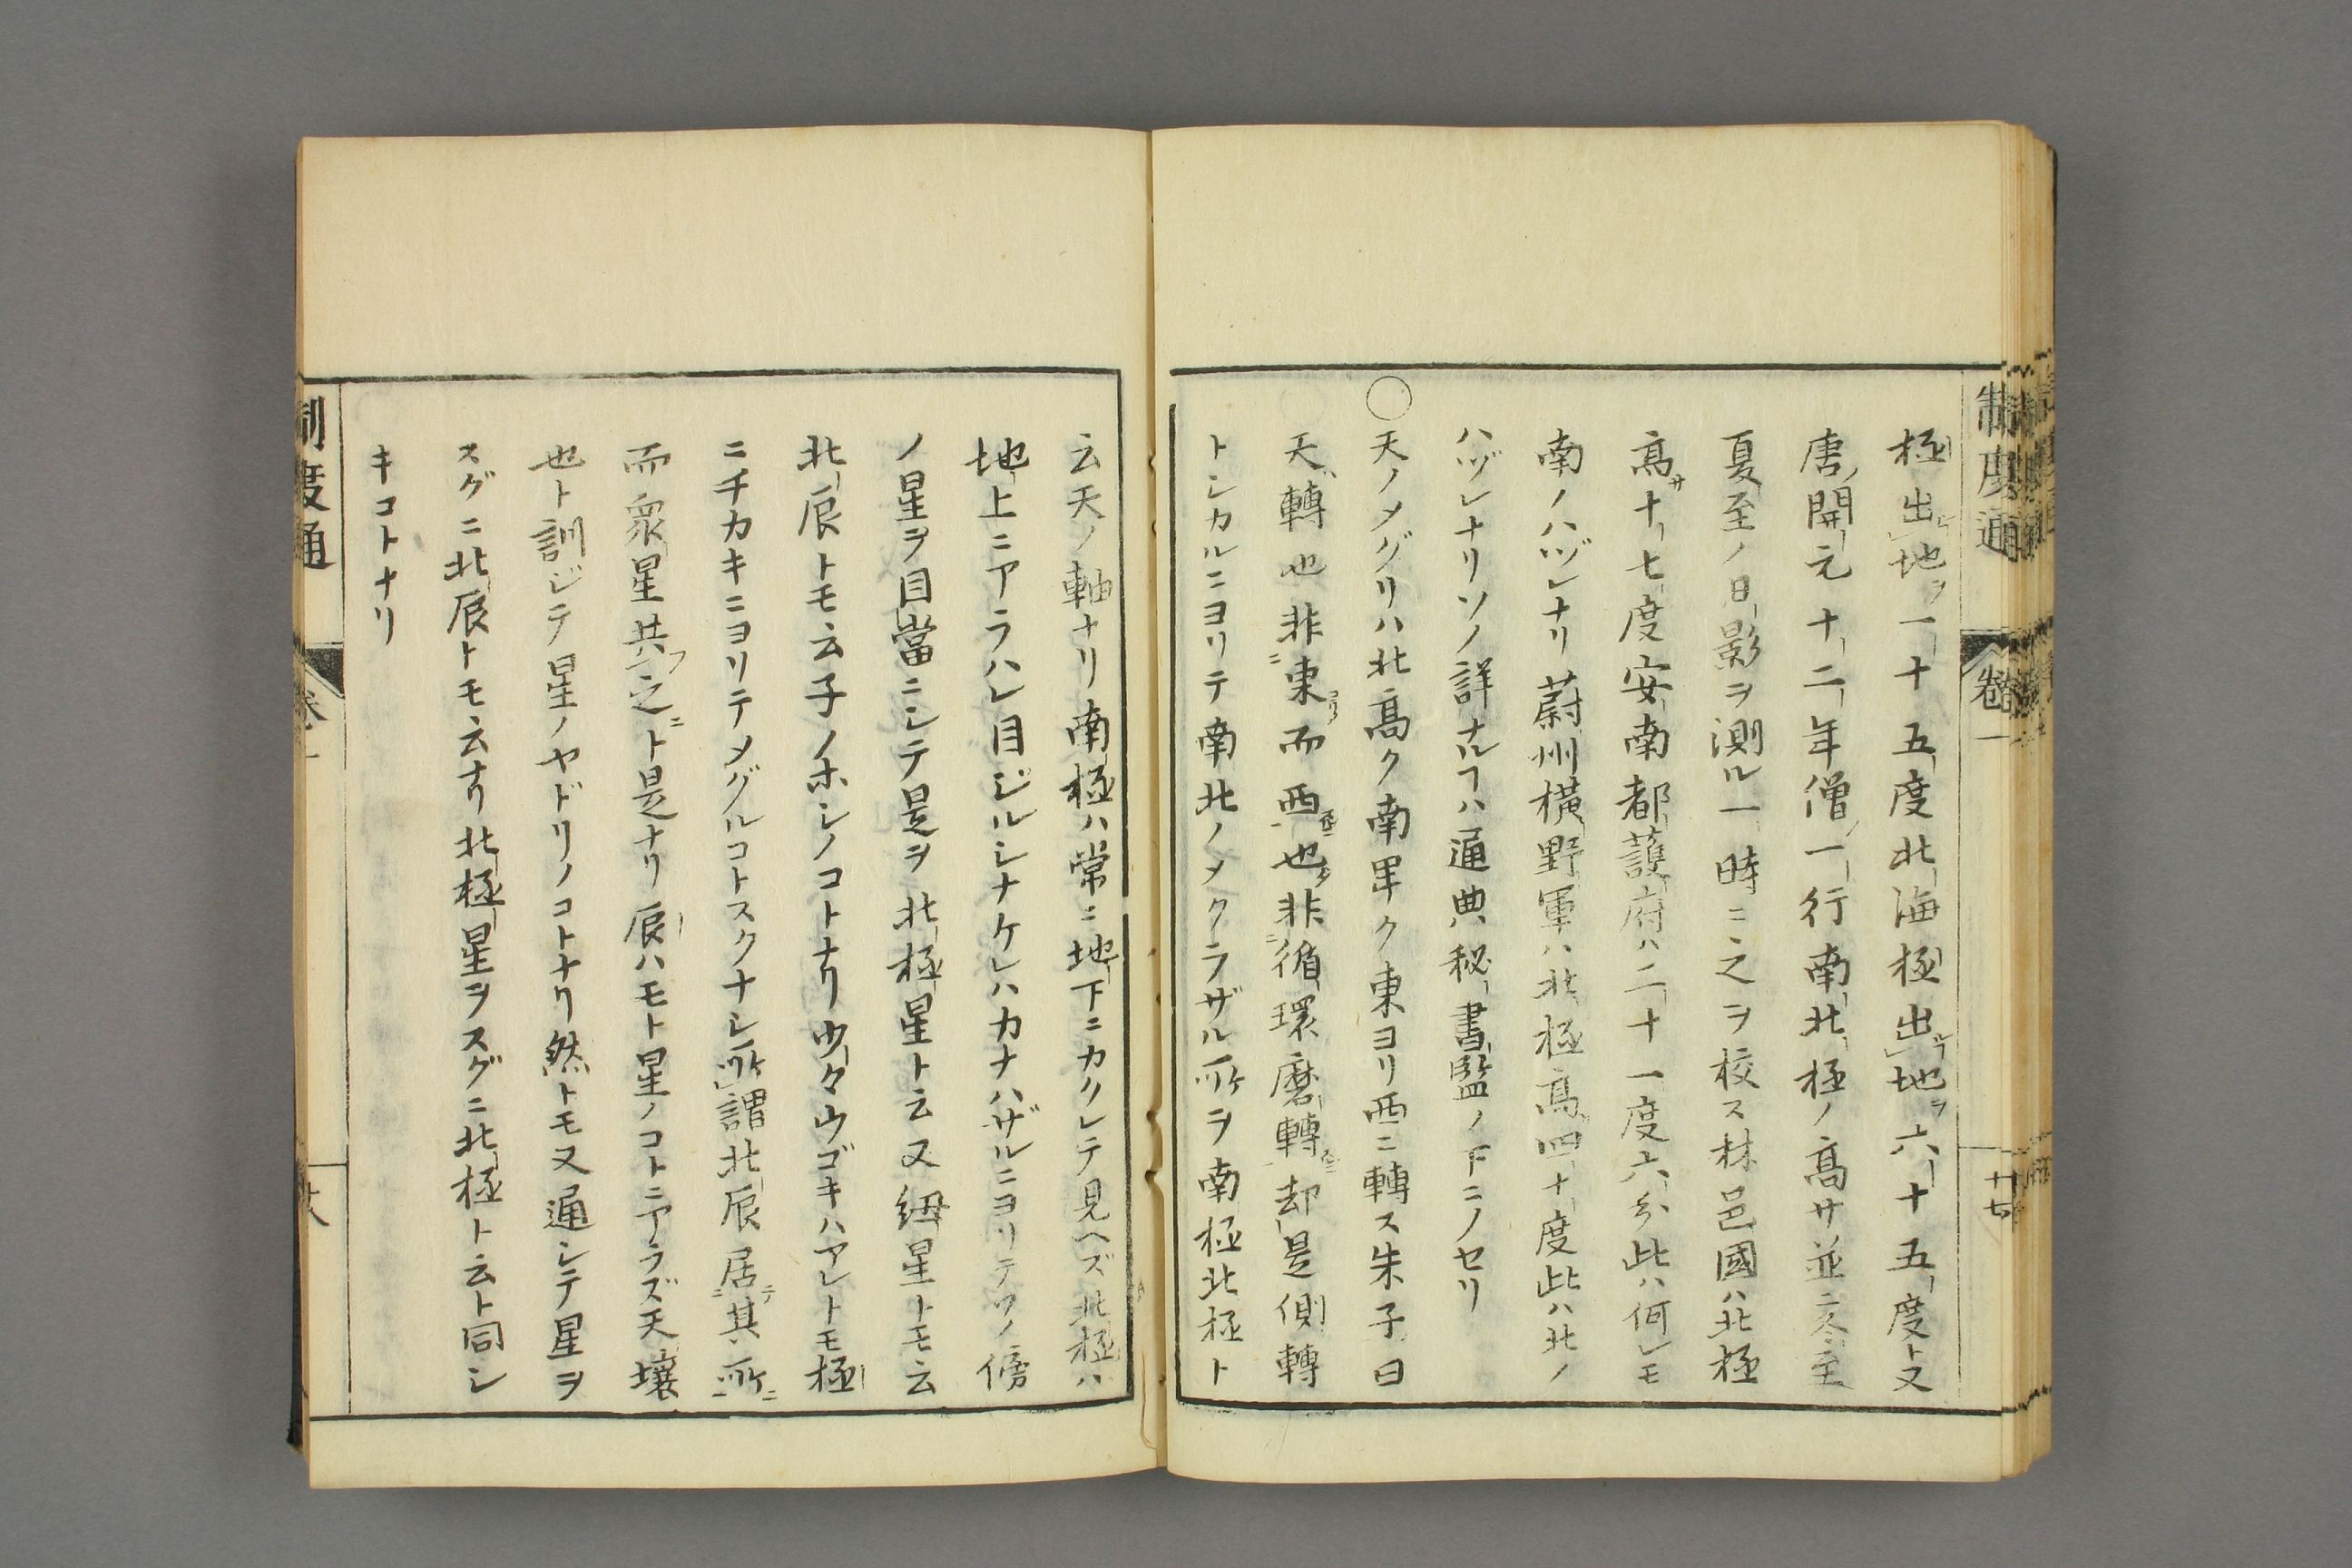 制度通 卷一 十七
極出地ヲ一十五度北海極出地ヲ六十五度ト又
唐ノ開元十二年僧一行南北極ノ高サ並ニ冬至
夏至ノ日影ヲ測ル一時ニ之ヲ校ス林邑國ハ北極
高サ十七度安南都護府ハ二十一度六分此ハ何レモ
南ノハヅレナリ蔚州横野軍ハ北極高四十度此ハ北ノ
ハヅレナリソノ詳ナルヿハ通典秘書監ノ下ニノセリ
○天ノメグリハ北高ク南卑ク東ヨリ西ニ轉ス朱子曰
天ノ轉也非東而西也非循環磨轉却是側轉
トシカルニヨリテ南北ノメクラザル所ヲ南極北極ト
云天ノ軸ナリ南極ハ常ニ地下ニカクレテ見ヘズ北極ハ
地上ニアラハレ目ジルシナケレハカナハザルニヨリテソノ傍
ノ星ヲ目當ニシテ是ヲ北極星ト云又紐星トモ云
北辰トモ云子ノホシノコトナリ少々ウゴキハアレトモ極
ニチカキニヨリテメグルコトスクナシ所謂北辰居テ其ノ所ニ
而衆星共フ之ニト是ナリ辰ハモト星ノコトニアラズ天壤
也ト訓ジテ星ノヤドリノコトナリ然トモ又通シテ星ヲ
スグニ北辰トモ云ナリ北極星ヲスグニ北極ト云ト同シ
キコトナリ
制度通 卷一